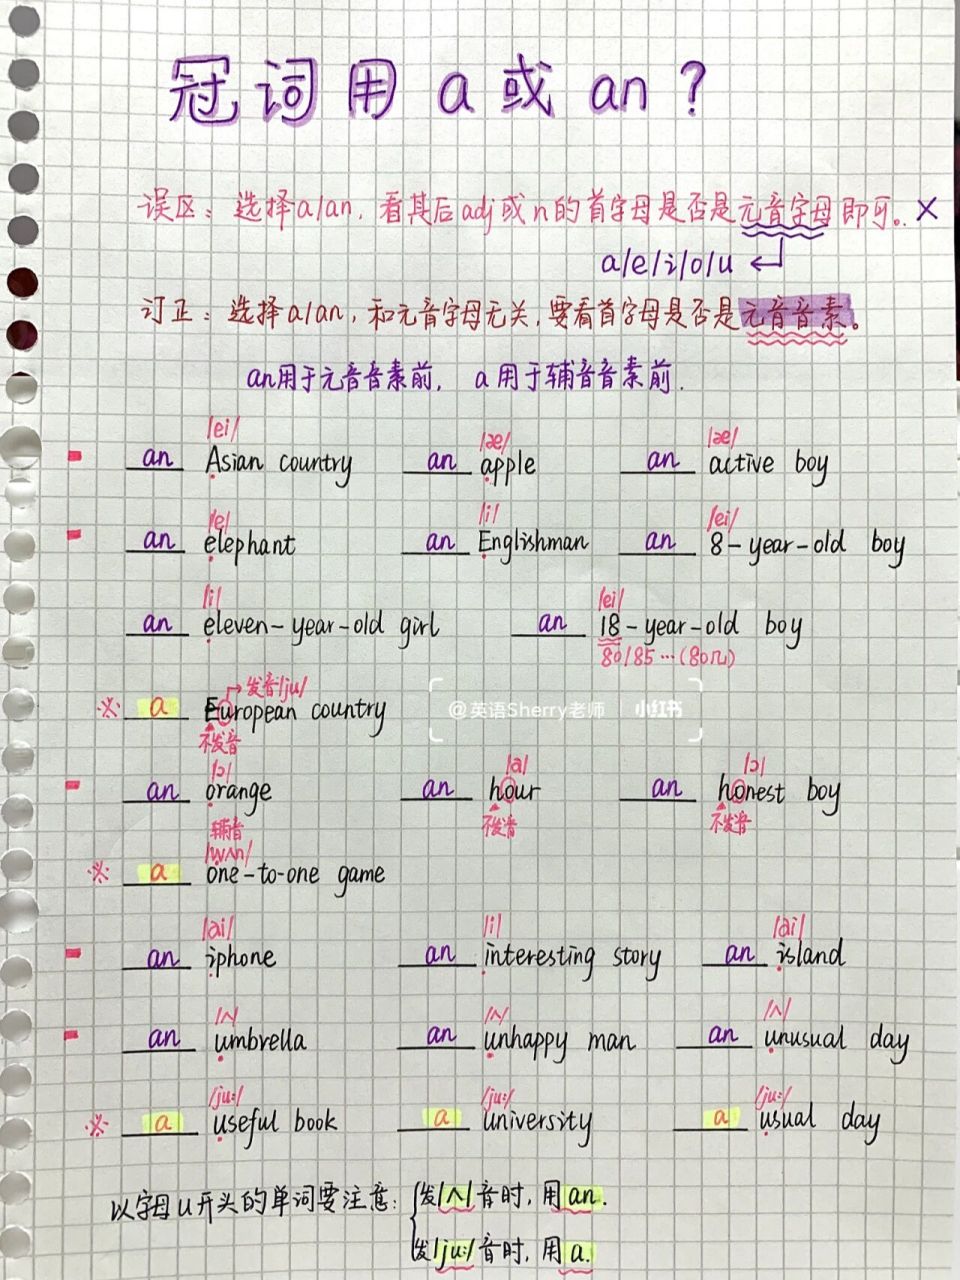 冠词用 a 或 an？
误区：选择a/an，看其后adj或n的首字母是否是元音字母即可。×
a/e/i/o/u
订正：选择a/an，和元音字母无关，要看首字母是否是元音音素。
an用于元音音素前， a 用于辅音音素前.
/ei/ /æ/ /æ/
an Asian country an apple an active boy
/e/ /i/ /ei/
an elephant an Englishman an 8-year-old boy
/i/ /ei/
an eleven-year-old girl an 18-year-old boy
80/85…(80几)
→发音/ju/
※ a European country
不发音
@英语Sherry老师 小红书
/ɔ/ /a/ /ɔ/
an orange an hour an honest boy
不发音 不发音
辅音
/wʌn/
※ a one-to-one game
/ai/ /i/ /ai/
an iphone an interesting story an island
/ʌ/ /ʌ/ /ʌ/
an umbrella an unhappy man an unusual day
/ju:/ /ju:/ /ju:/
※ a useful book a university a usual day
以字母u开头的单词要注意：发/ʌ/音时，用an.
发/ju:/音时，用a.